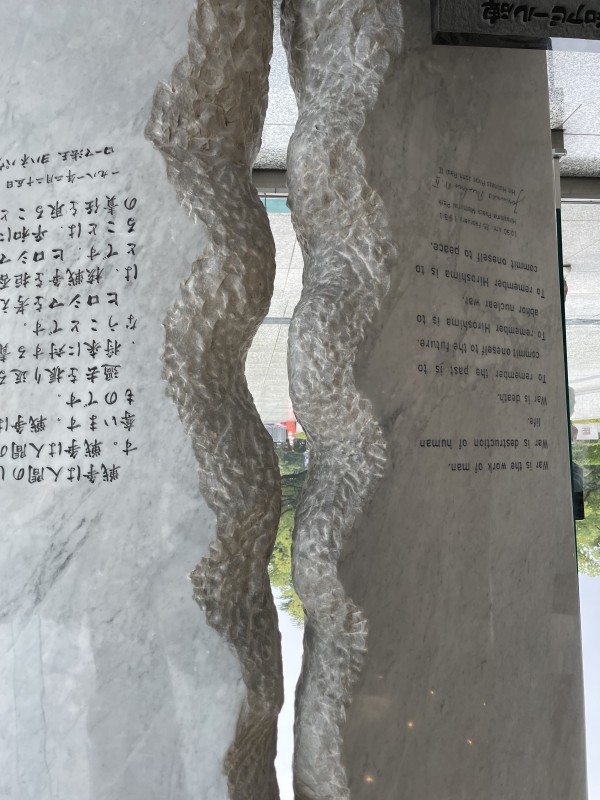 War is the work of man.
War is destruction of human
life.
War is death.
To remember the past is to
commit oneself to the future.
To remember Hiroshima is to
abhor nuclear war.
To remember Hiroshima is to
commit oneself to peace.
25 February 1981
Hiroshima Peace Memorial Park
His Holiness Pope John Paul II
戦争は人間の
す。戦争は人間の
奪います。戦争は
ものです。
過去を振り返る
将来に対する責
なうことです。
ヒロシマを考え
は、核戦争を拒否
とです。ヒロシマ
ることは、平和に
の責任を取ること
一九八一年二月二十五日
ローマ法王 ヨハネ パウ
和アピール碑